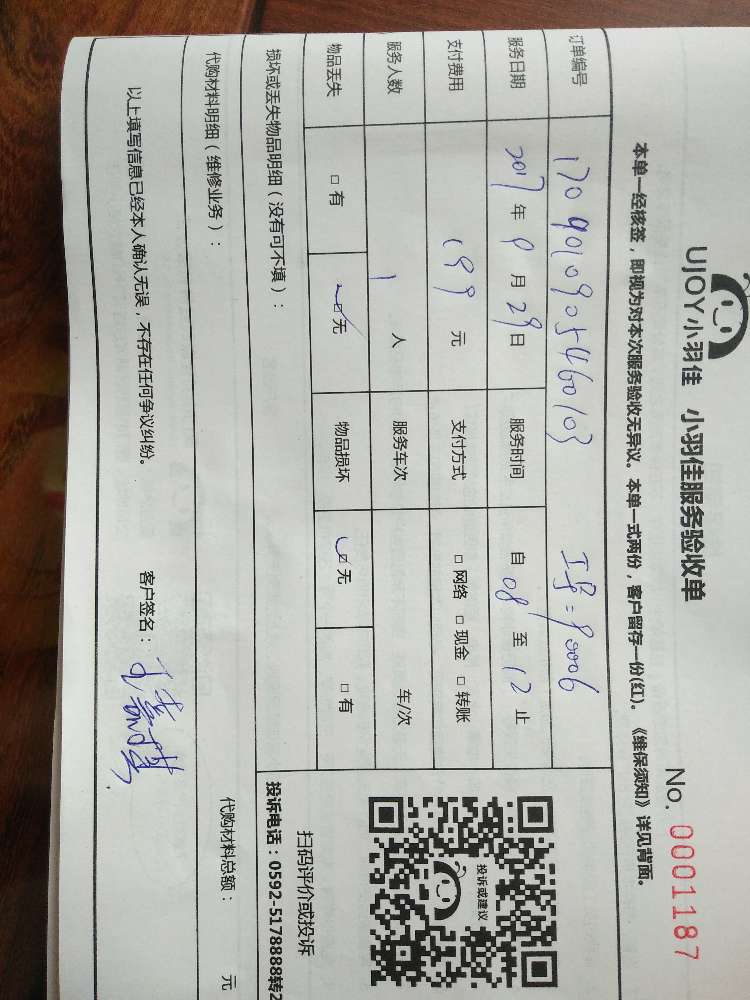 UJOY小羽佳 小羽佳服务验收单
No. 0001187
本单一经核签，即视为对本次服务验收无异议。本单一式两份，客户留存一份(红)。《维保须知》详见背面。
订单编号 17090109054460103 工号=90006
服务日期 2017年9月29日 服务时间 自08至12止
支付费用 199元 支付方式 □网络 □现金 □转账
服务人数 1人 服务车次 车/次
物品丢失 □有 ☑无 物品损坏 ☑无 □有
损坏或丢失物品明细（没有可不填）：
投诉或建议
扫码评价或投诉
投诉电话：0592-5178888转2
代购材料明细（维修业务）： 代购材料总额： 元
以上填写信息已经本人确认无误，不存在任何争议纠纷。 客户签名：